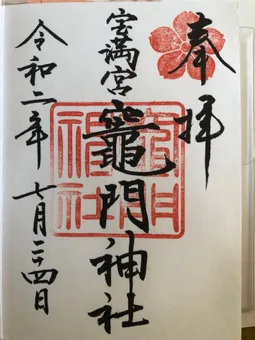 奉拝
宝満宮
竈門神社
令和二年七月二十四日
竈門
神社